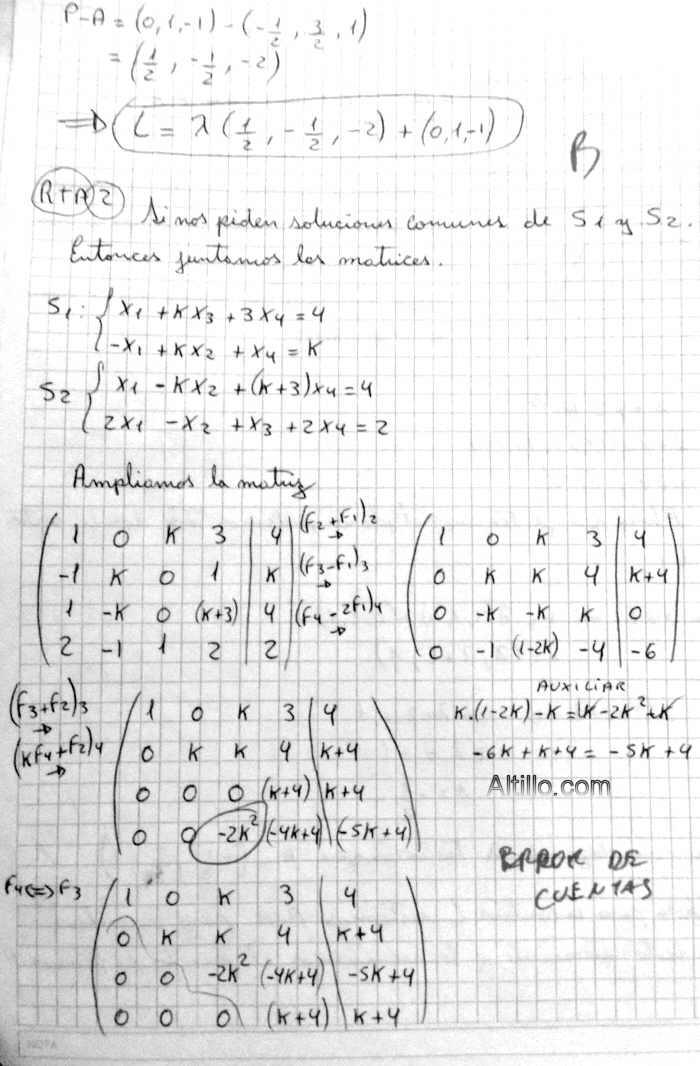 P-A = (0,1,-1) - (-1/2, 3/2, 1)
= (1/2, -1/2, -2)
=> L = λ (1/2, -1/2, -2) + (0,1,-1)
B
RTA 2 Si nos piden soluciones comunes de S1 y S2.
Entonces juntamos las matrices.
S1: { x1 + Kx3 + 3x4 = 4
-x1 + Kx2 + x4 = K
S2 { x1 - Kx2 + (K+3)x4 = 4
2x1 - x2 + x3 + 2x4 = 2
Ampliamos la matriz
1 0 K 3 | 4 (F2+F1)2 → 1 0 K 3 | 4
-1 K 0 1 | K (F3-F1)3 → 0 K K 4 | K+4
1 -K 0 (K+3) | 4 (F4-2F1)4 → 0 -K -K K | 0
2 -1 1 2 | 2 0 -1 (1-2K) -4 | -6
(F3+F2)3 → 1 0 K 3 | 4
(KF4+F2)4 → 0 K K 4 | K+4
0 0 0 (K+4) | K+4
0 0 -2K² (-4K+4) | (-5K+4)
AUXILIAR
K.(1-2K)-K = K-2K²+K
-6K+K+4 = -5K+4
Altillo.com
ERROR DE
CUENTAS
F4<=>F3 1 0 K 3 | 4
0 K K 4 | K+4
0 0 -2K² (-4K+4) | -5K+4
0 0 0 (K+4) | K+4
NOTA